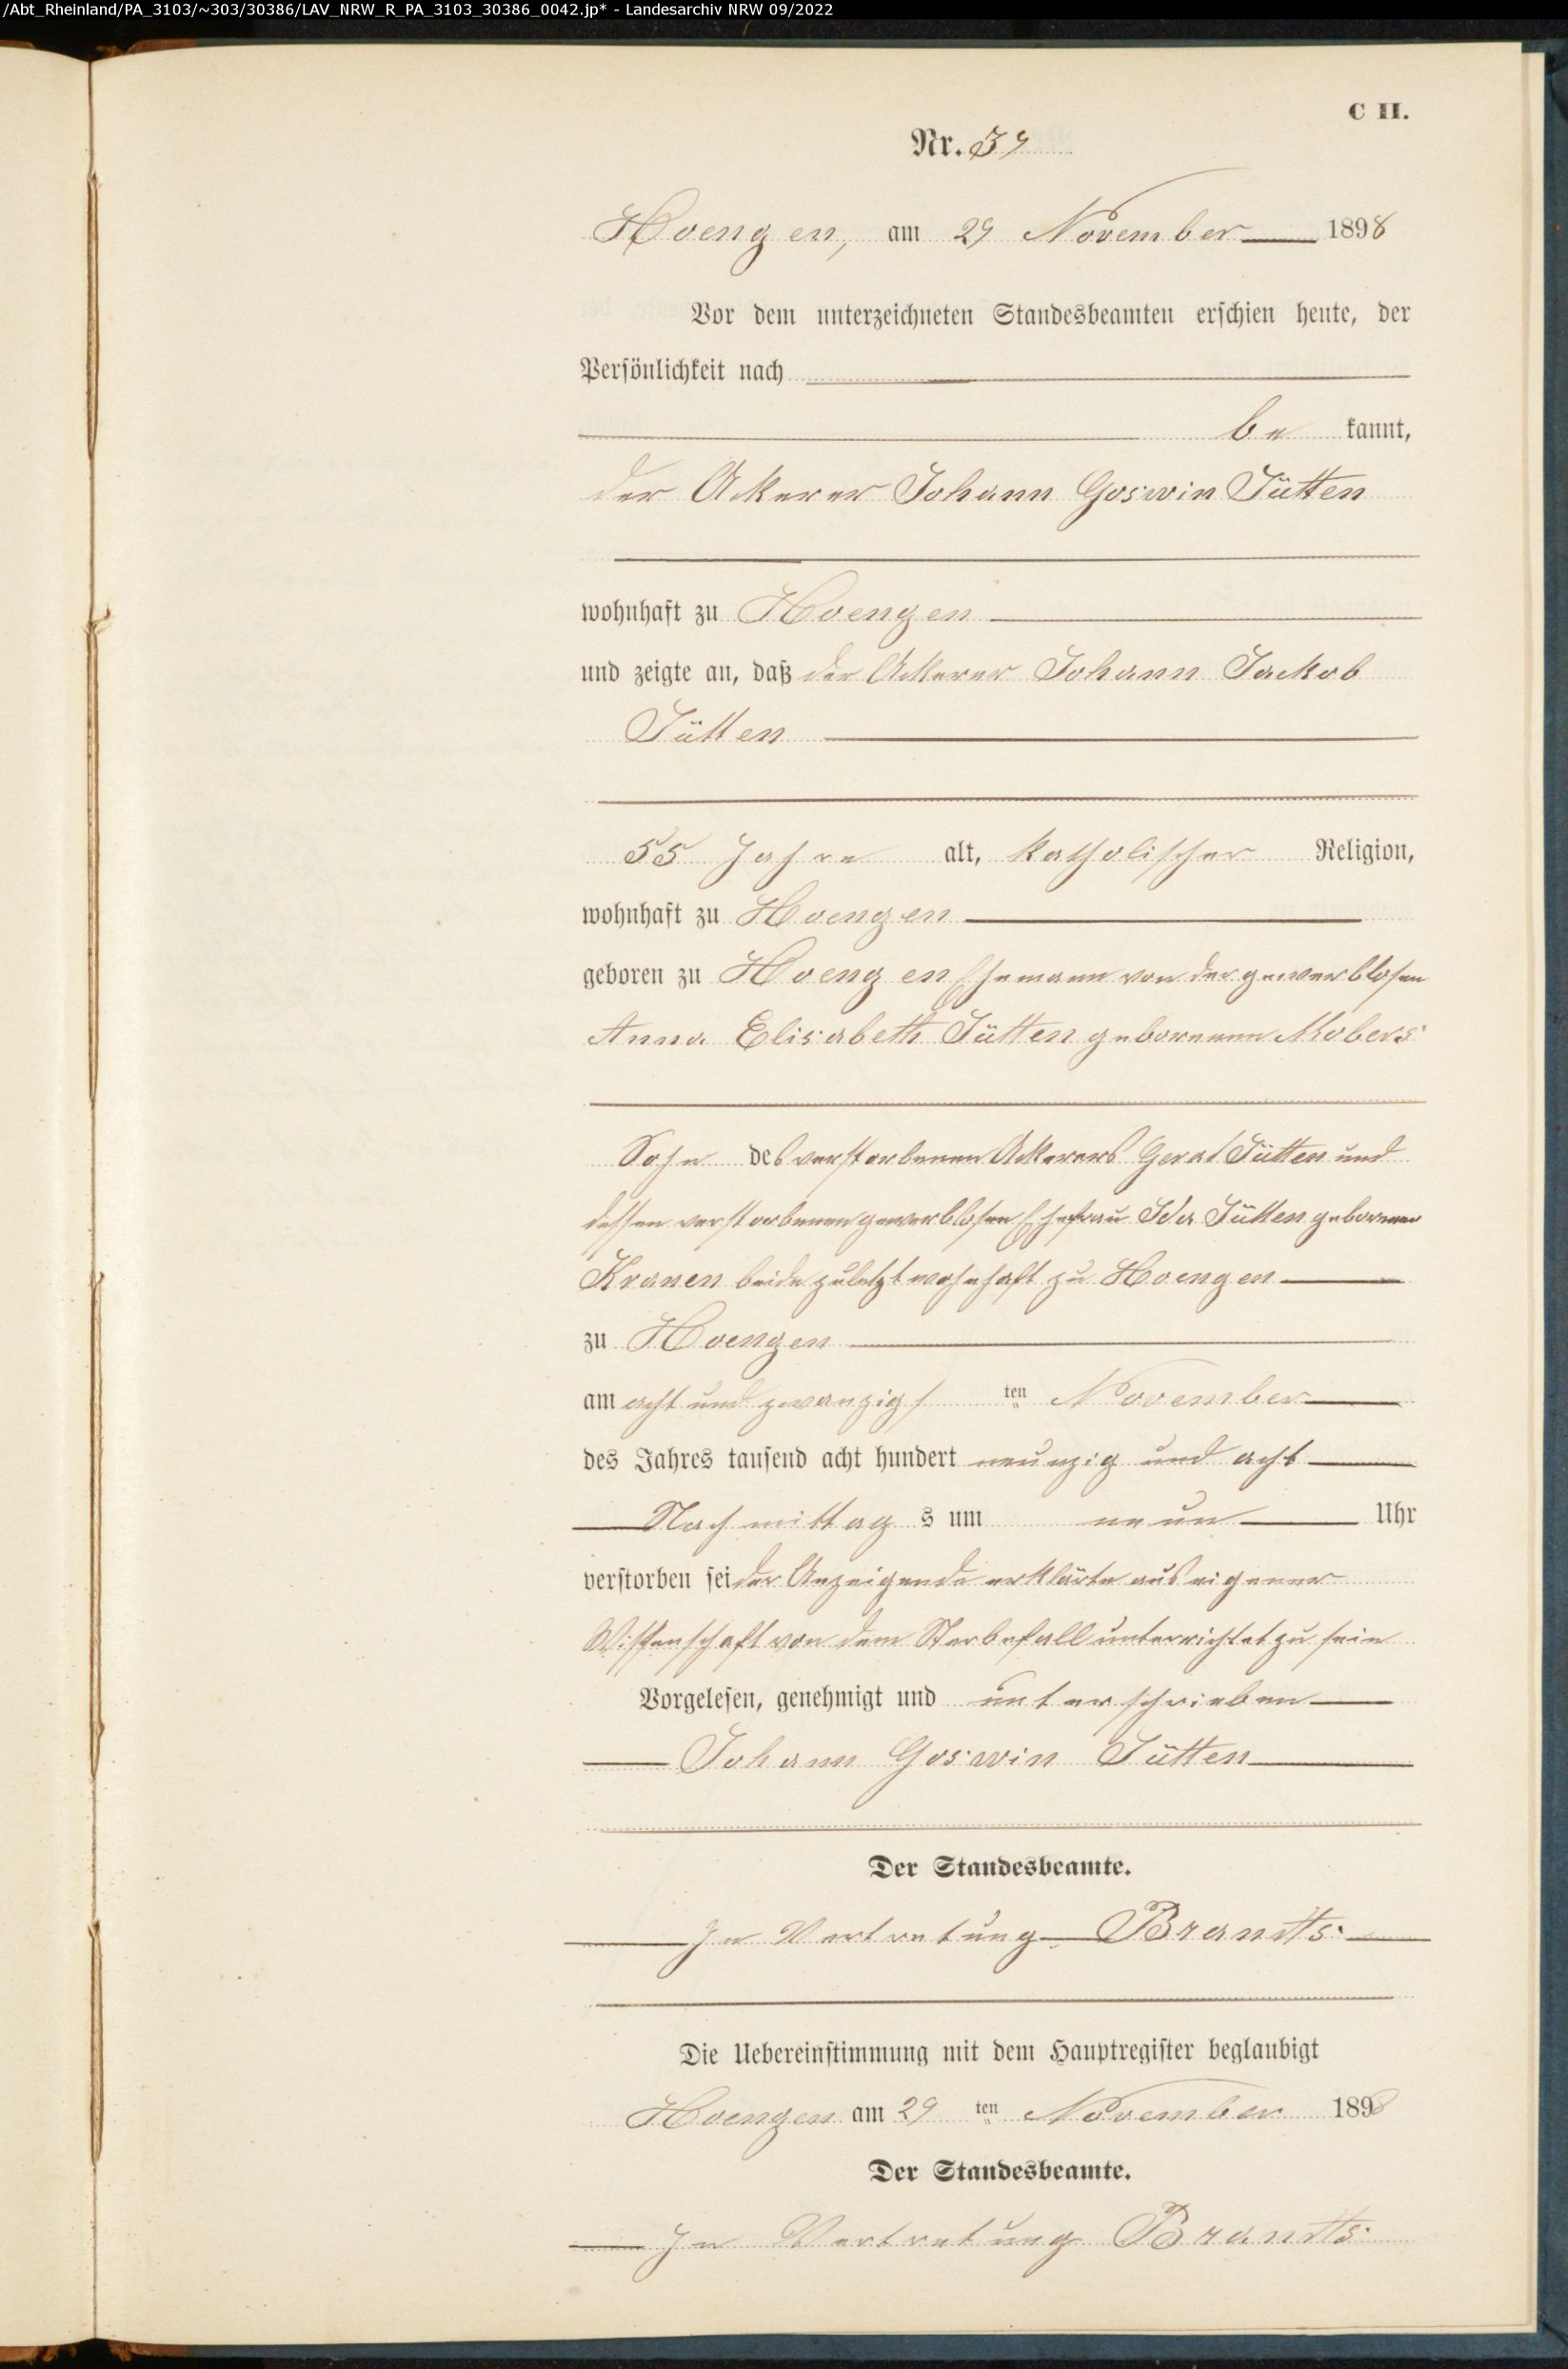 /Abt_Rheinland/PA_3103/~303/30386/LAV_NRW_R_PA_3103_30386_0042.jp* - Landesarchiv NRW 09/2022
C II.
Nr. 39
Hoengen, am 29 November 1898
Vor dem unterzeichneten Standesbeamten erschien heute, der
Persönlichkeit nach
be kannt,
der Ackerer Johann Goswin Jütten
wohnhaft zu Hoengen
und zeigte an, daß der Ackerer Johann Jackob
Jütten
55 Jahre alt, katholischer Religion,
wohnhaft zu Hoengen
geboren zu Hoengen Ehemann von der gewerblosen
Anna Elisabeth Jütten geborenen Mobers
Sohn des verstorbenen Ackerers Gerat Jütten und
dessen verstorbenen gewerblosen Ehefrau Ida Jütten geborenen
Kranen beide zuletzt wohnhaft zu Hoengen
zu Hoengen
am acht und zwanzigs ten November
des Jahres tausend acht hundert neunzig und acht
Nachmittag s um neun Uhr
verstorben sei der Anzeigende erklärte aus eigener
Wissenschaft von dem Sterbefall unterrichtet zu sein
Vorgelesen, genehmigt und unterschrieben
Johann Goswin Jütten
Der Standesbeamte.
In Vertretung Brandts
Die Uebereinstimmung mit dem Hauptregister beglaubigt
Hoengen am 29 ten November 1898
Der Standesbeamte.
In Vertretung Brandts